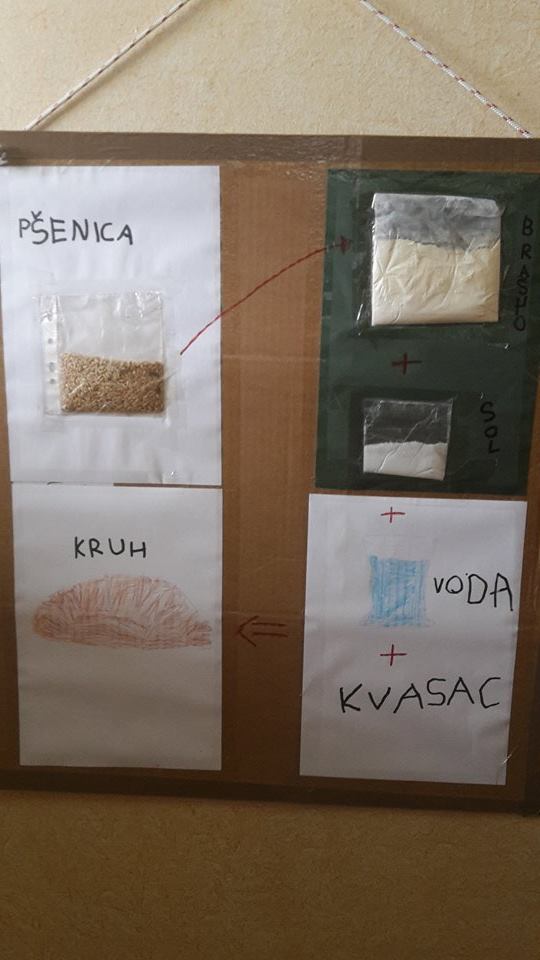 PŠENICA
BRAŠNO
+
SOL
+
VODA
+
KVASAC
KRUH